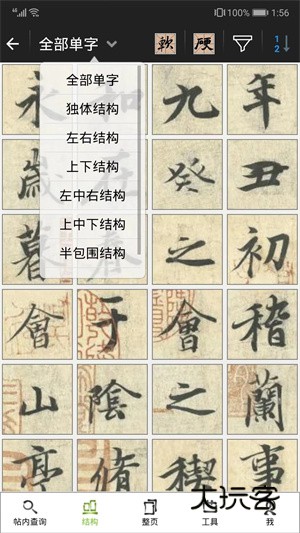 100% 1:56
全部单字 軟 硬 1 2
全部单字
独体结构
左右结构
上下结构
左中右结构
上中下结构
半包围结构
永 和 九 年
歲 在 癸 丑
暮 春 之 初
會 于 會 稽
山 陰 之 蘭
亭 脩 禊 事
帖内查询 结构 整页 工具 我
大玩客